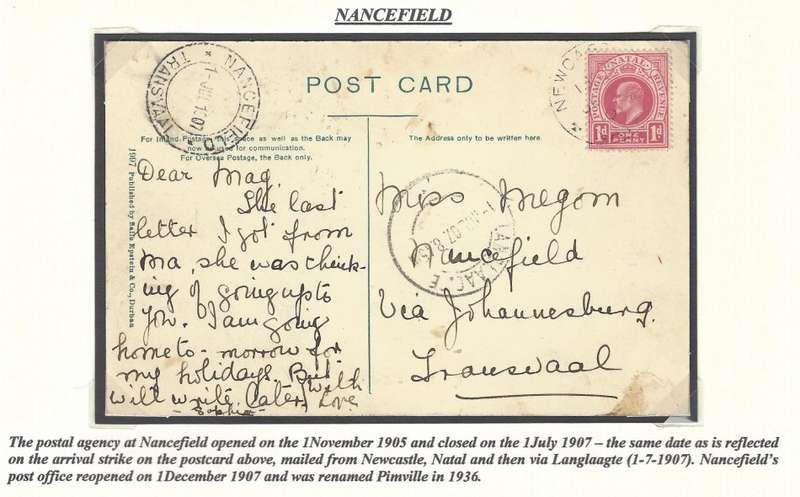 NANCEFIELD
NANCEFIELD
TRANSVAAL
1 JUL 07
POST CARD
NEWCA
POSTAGE NATAL REVENUE
1d 1d
ONE
PENNY
For Inland Postage this space as well as the Back may
now be used for communication.
For Oversea Postage, the Back only.
The Address only to be written here.
1907 Published by Sallo Epstein & Co., Durban
Dear Mag,
The last
letter I got from
Ma, she was think-
ing of going up to
you. I am going
home to-morrow for
my holidays. But
will write later, with
Love
Sophia
Miss Megom
Nancefield
Via Johannesburg.
Transvaal
LANGLAAGTE
1 JUL 07
The postal agency at Nancefield opened on the 1November 1905 and closed on the 1July 1907 – the same date as is reflected
on the arrival strike on the postcard above, mailed from Newcastle, Natal and then via Langlaagte (1-7-1907). Nancefield's
post office reopened on 1December 1907 and was renamed Pimville in 1936.